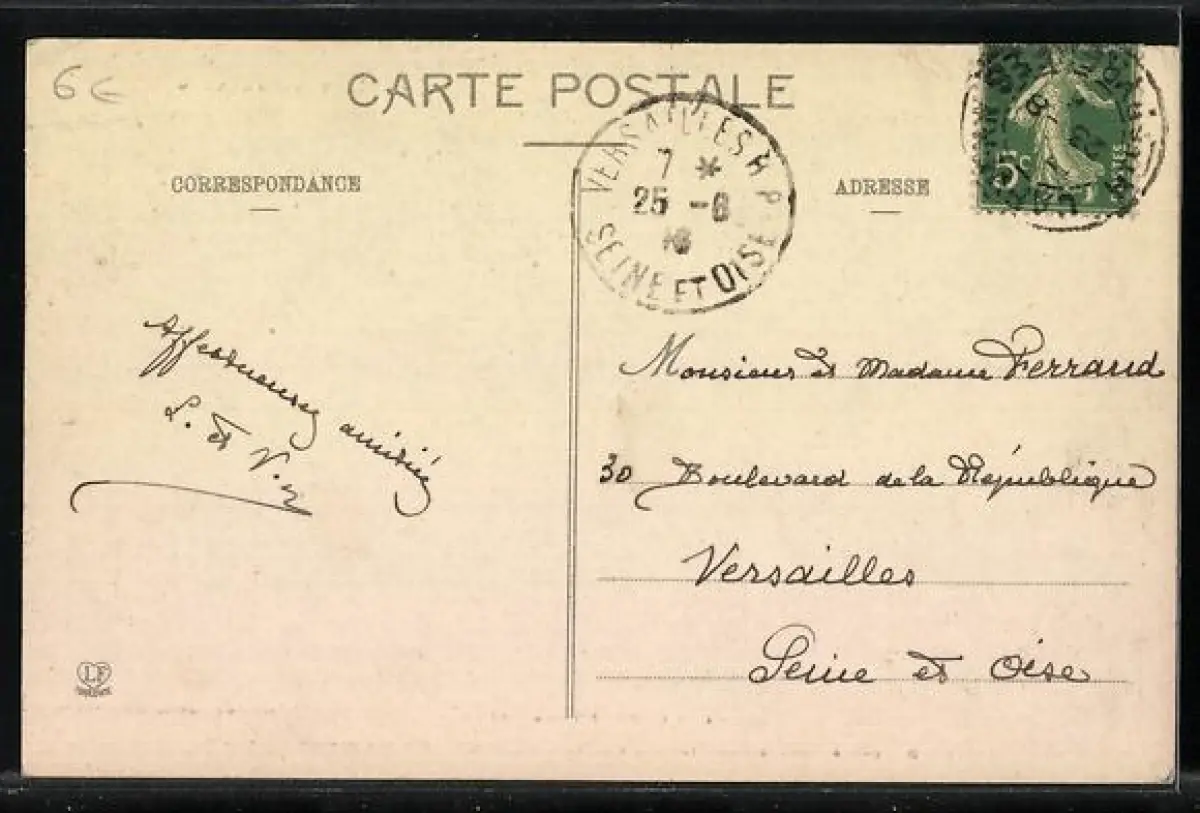 6€
CARTE POSTALE
CORRESPONDANCE
ADRESSE
VERSAILLES R.P.
7 *
25 -6
SEINE ET OISE
5c
Affectueuses amitiés
L. et V.
Monsieur et Madame Ferrand
30 Boulevard de la République
Versailles
Seine et Oise
LF